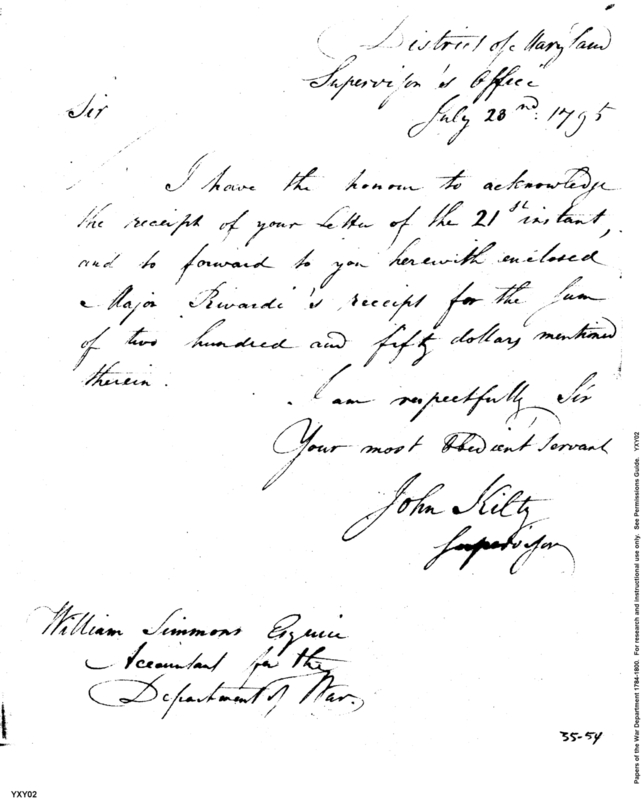 District of Maryland
Supervisor's Office
July 23nd. 1795
Sir
I have the honour to acknowledge
the receipt of your Letter of the 21st instant,
and to forward to you herewith enclosed
Major Rivardi's receipt for the Sum
of two hundred and fifty dollars mentioned
therein.
I am respectfully Sir
Your most Obedient Servant
John Kilty
Supervisor
William Simmons Esquire
Accountant for the
Department of War.
35-54
YXY02
Papers of the War Department 1784-1800. For research and instructional use only. See Permissions Guide. YXY02